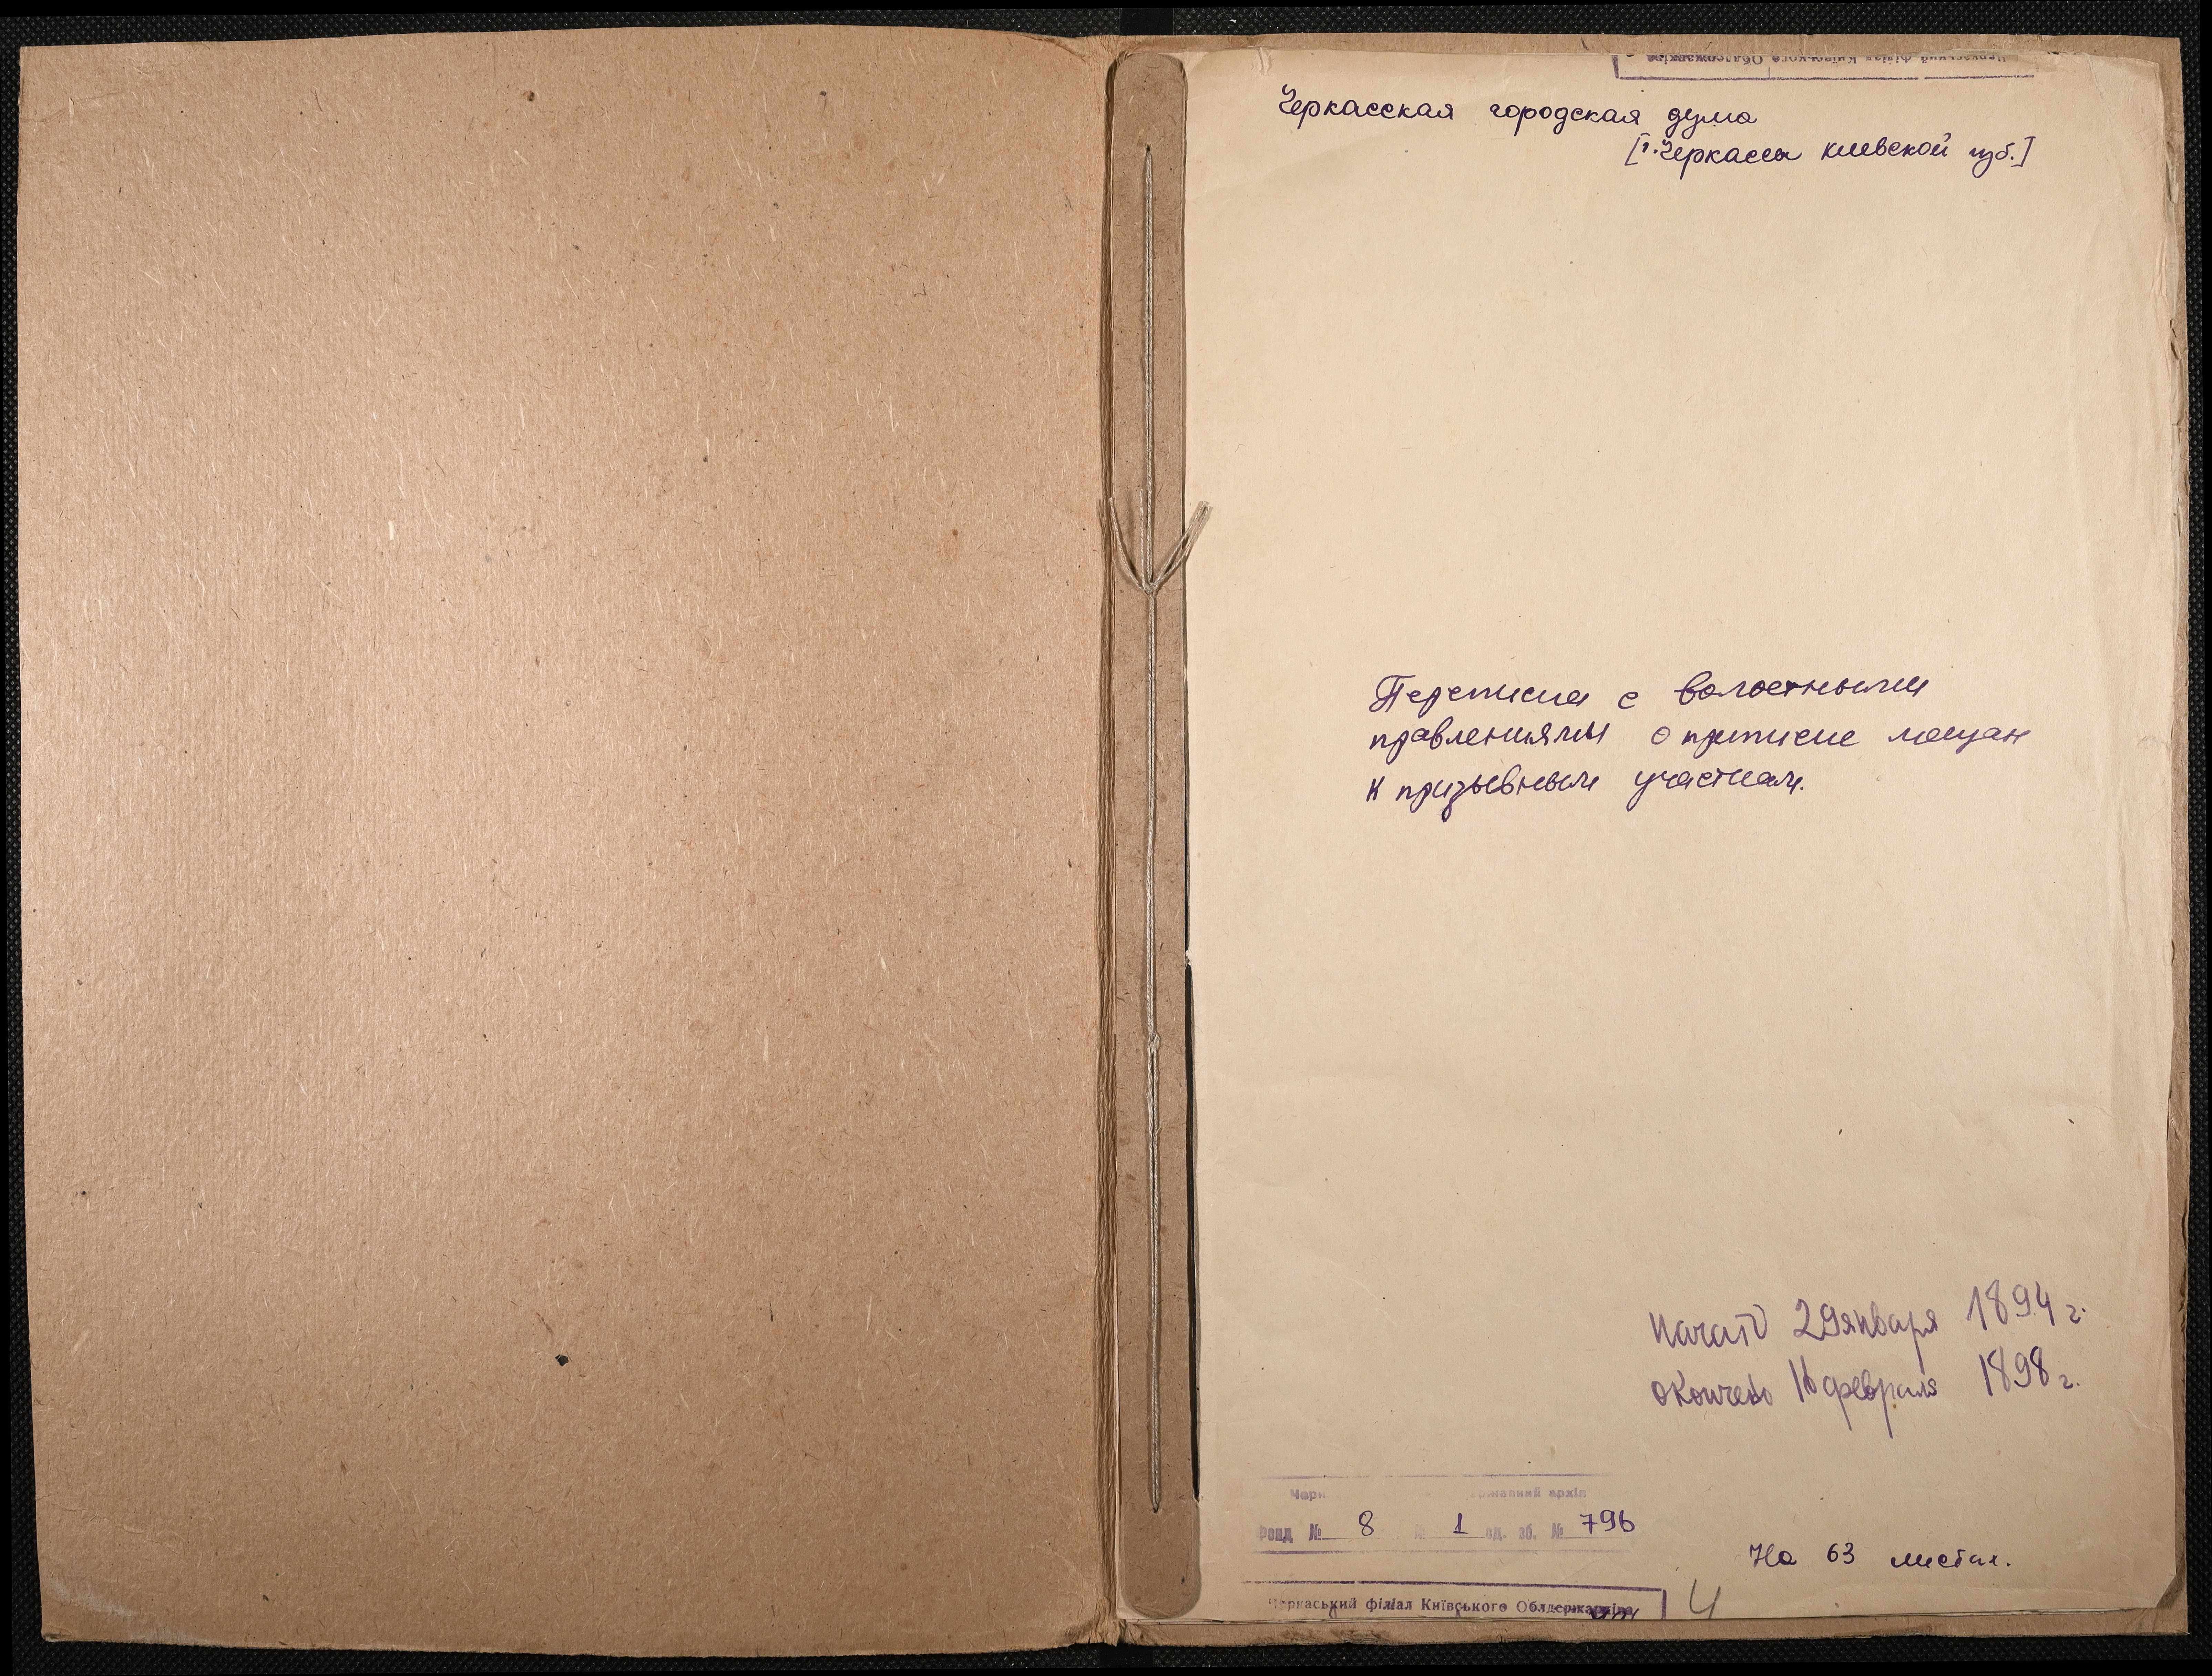 Черкаський філіал Київського Облдержархіва
Черкасская городская дума
[г. Черкассы киевской губ.]
Переписка с волостными
правлениями о приписке мещан
к призывным участкам.
Начато 29 января 1894 г.
Окончено 16 февраля 1898 г.
державний архів
Фонд № 8 № 1 од. зб. № 796
На 63 листах.
Черкаський філіал Київського Облдержархіва
4